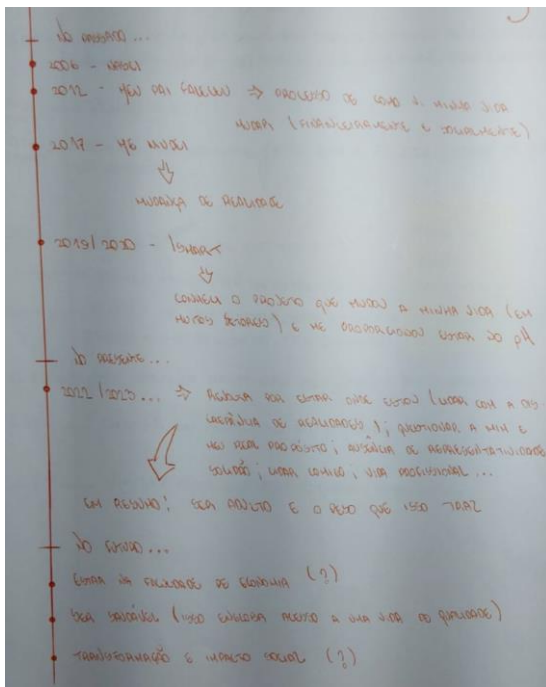 NO PASSADO ...
2006 - NASCI
2012 - MEU PAI FALECEU ⇒ PROCESSO DE COMO A MINHA VIDA
MUDAR (FINANCEIRAMENTE E SOCIALMENTE)
2017 - ME MUDEI
MUDANÇA DE REALIDADE
2019/2020 - ISMART
CONHECI O PROJETO QUE MUDOU A MINHA VIDA (EM
MUITOS SETORES) E ME PROPORCIONOU ESTAR NO pH
NO PRESENTE ...
2022/2023 ... ⇒ POR ESTAR ONDE ESTOU (LIDAR COM A DIS-
DE REALIDADES); QUESTIONAR A MIM E
MEU REAL PROPÓSITO; AUSÊNCIA DE REPRESENTATIVIDADE
SOLIDÃO; LIDAR COMIGO; VIDA PROFISSIONAL ...
EM RESUMO: SER ADULTO E O PESO QUE ISSO TRAZ
NO FUTURO ...
ESTAR NA FACULDADE DE ECONOMIA (?)
SER SAUDÁVEL (ISSO ENGLOBA ACESSO A UMA VIDA DE QUALIDADE)
TRANSFORMAÇÃO E IMPACTO SOCIAL (?)